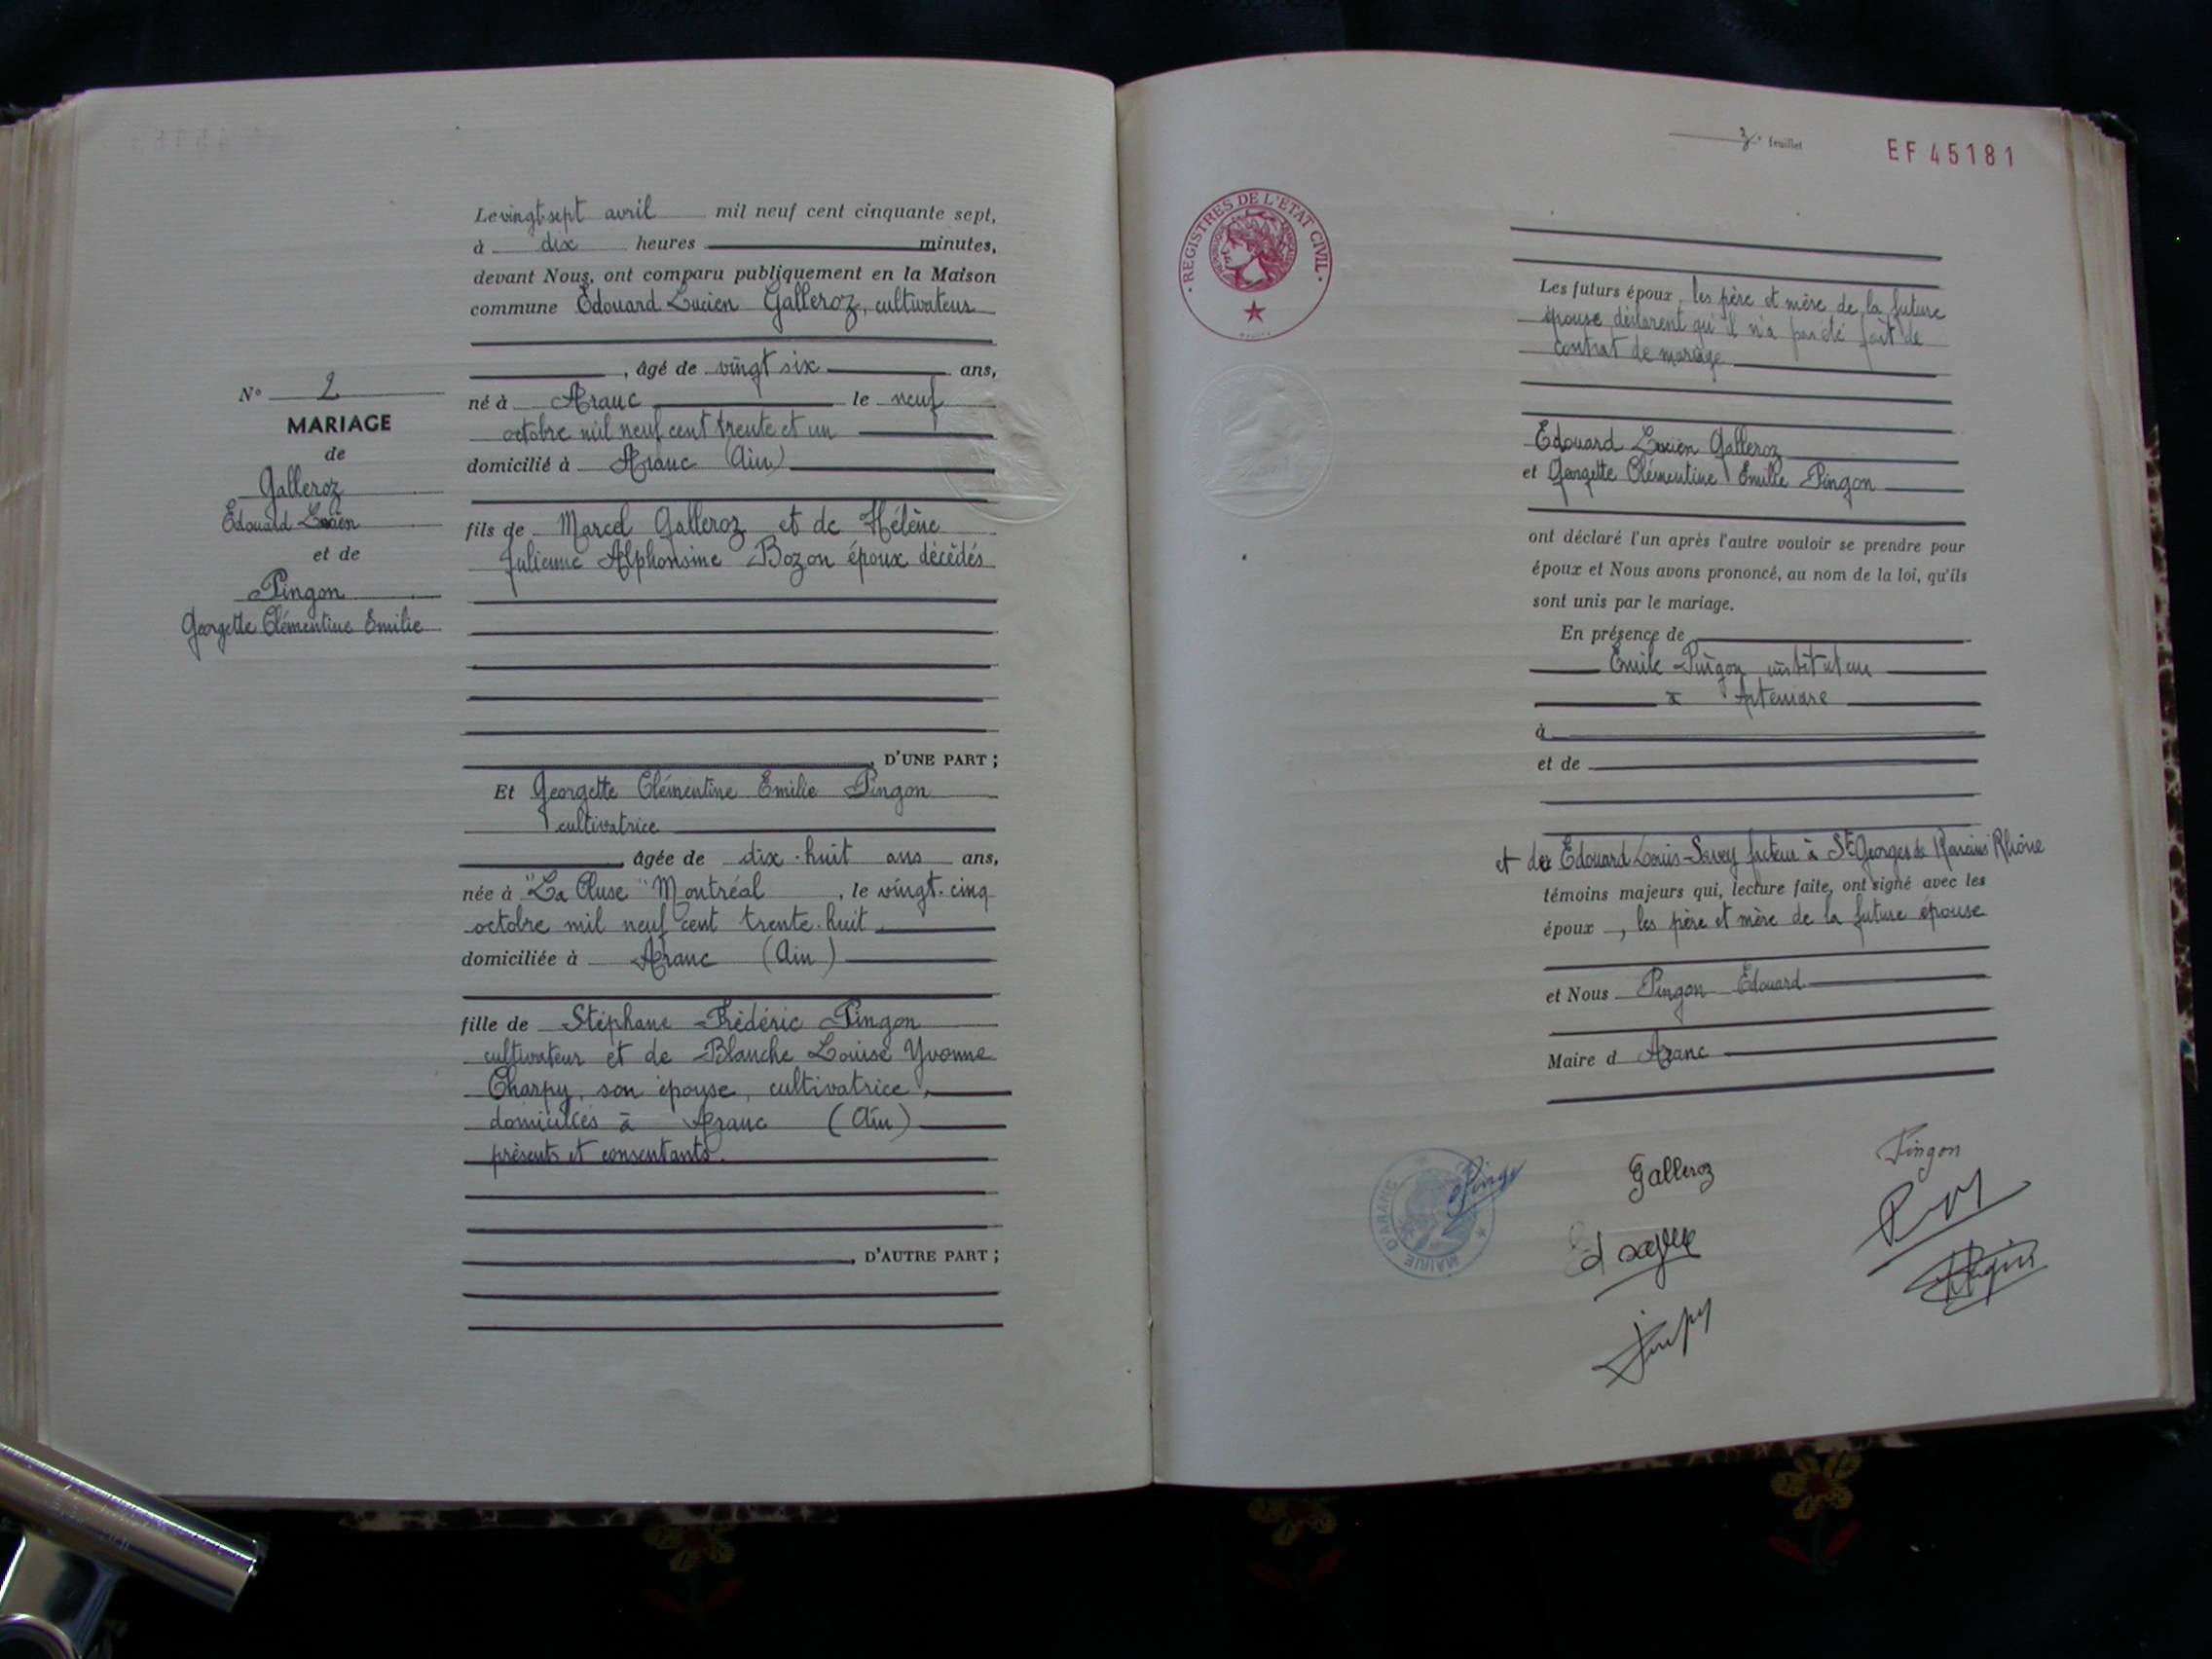 Le vingt sept avril mil neuf cent cinquante sept,
à dix heures minutes,
devant Nous, ont comparu publiquement en la Maison
commune Edouard Lucien Galleroz, cultivateur
, âgé de vingt six ans,
né à Aranc le neuf
octobre mil neuf cent trente et un
domicilié à Aranc (Ain)
fils de Marcel Galleroz et de Hélène
Julienne Alphonsine Bozon époux décédés
D'UNE PART ;
Et Georgette Clémentine Emilie Pingon
cultivatrice
âgée de dix-huit ans ans,
née à "La Cluse" Montréal, le vingt-cinq
octobre mil neuf cent trente-huit
domiciliée à Aranc (Ain)
fille de Stéphane Frédéric Pingon
cultivateur et de Blanche Louise Yvonne
Charpy, son épouse, cultivatrice,
domiciliés à Aranc (Ain)
présents et consentants.
, D'AUTRE PART ;
N° 2
MARIAGE
de
Galleroz
Edouard Lucien
et de
Pingon
Georgette Clémentine Emilie
feuillet
EF 45181
REGISTRES DE L'ETAT CIVIL
Les futurs époux, les père et mère de la future
épouse déclarent qu'il n'a pas été fait de
contrat de mariage
Edouard Lucien Galleroz
et Georgette Clémentine Emilie Pingon
ont déclaré l'un après l'autre vouloir se prendre pour
époux et Nous avons prononcé, au nom de la loi, qu'ils
sont unis par le mariage.
En présence de
Emile Pingon instituteur
à Artemare
à
et de
et de Edouard Louis Savey facteur à St Georges de Reneins Rhône
témoins majeurs qui, lecture faite, ont signé avec les
époux, les père et mère de la future épouse
et Nous Pingon Édouard
Maire d Aranc
MAIRIE D'ARANC
Galleroz
Pingon